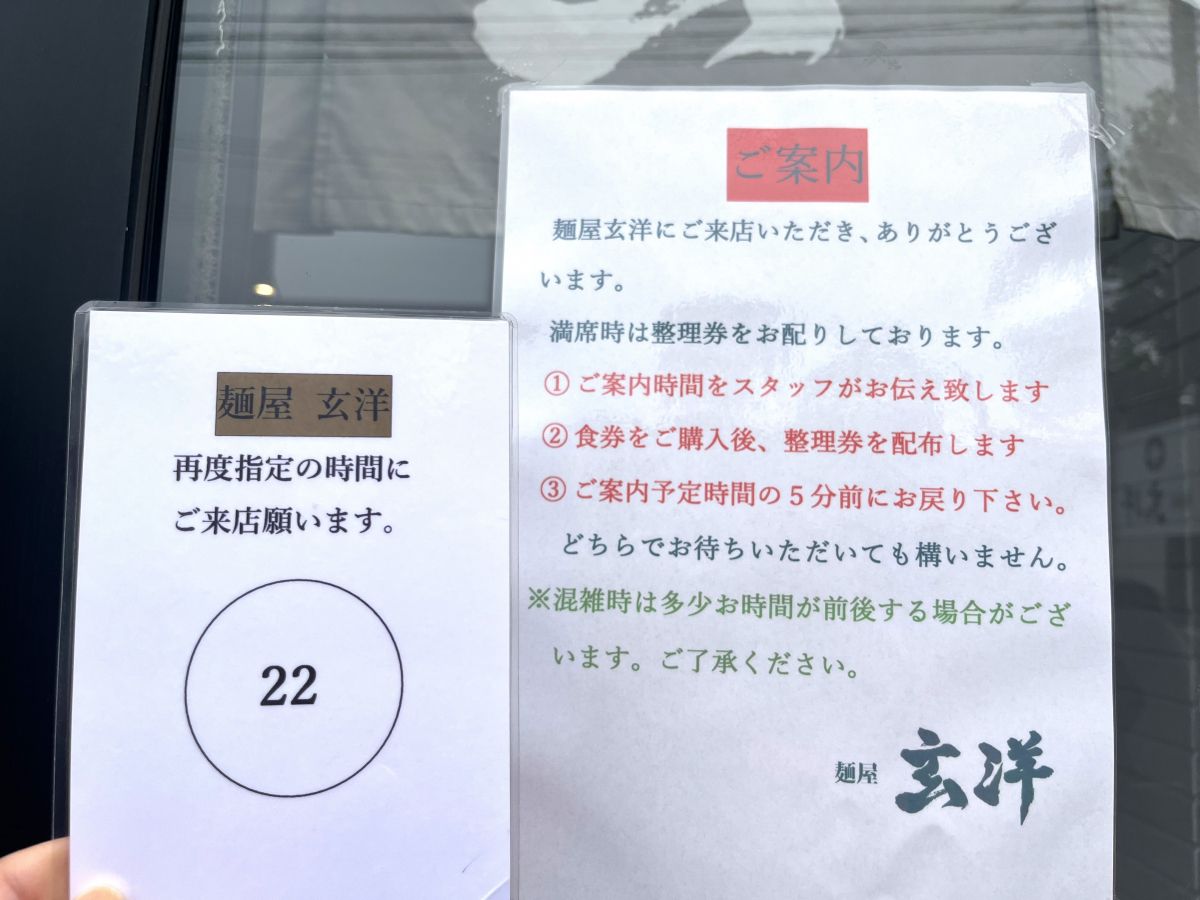 麺屋 玄洋
再度指定の時間に
ご来店願います。
22
ご案内
麺屋玄洋にご来店いただき、ありがとうござ
います。
満席時は整理券をお配りしております。
①ご案内時間をスタッフがお伝え致します
②食券をご購入後、整理券を配布します
③ご案内予定時間の5分前にお戻り下さい。
どちらでお待ちいただいても構いません。
※混雑時は多少お時間が前後する場合がござ
います。ご了承ください。
麺屋 玄洋